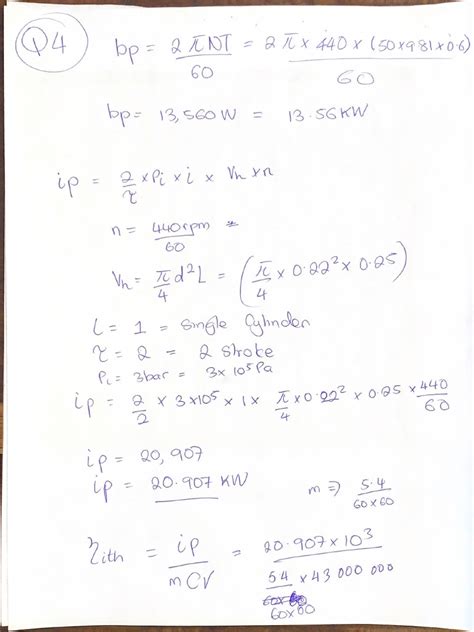 Q4
bp = 2πNT/60 = 2π × 440 × (50×9.81×0.6)/60
bp = 13,560 W = 13.56 KW
ip = 2/τ × Pi × i × Vh × n
n = 440rpm/60
Vh = π/4 d²L = (π/4 × 0.22² × 0.25)
i = 1 = Single Cylinder
τ = 2 = 2 stroke
Pi = 3bar = 3×10⁵Pa
ip = 2/2 × 3×10⁵ × 1 × π/4 × 0.22² × 0.25 × 440/60
ip = 20,907
ip = 20.907 KW
m => 5.4/60×60
ηith = ip/mCV = 20.907×10³/(5.4/60×60 × 43 000 000)